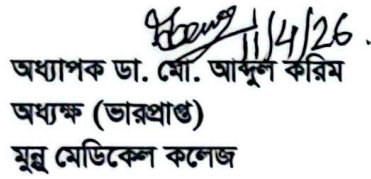 11/4/26.
অধ্যাপক ডা. মো. আব্দুল করিম
অধ্যক্ষ (ভারপ্রাপ্ত)
মুন্নু মেডিকেল কলেজ